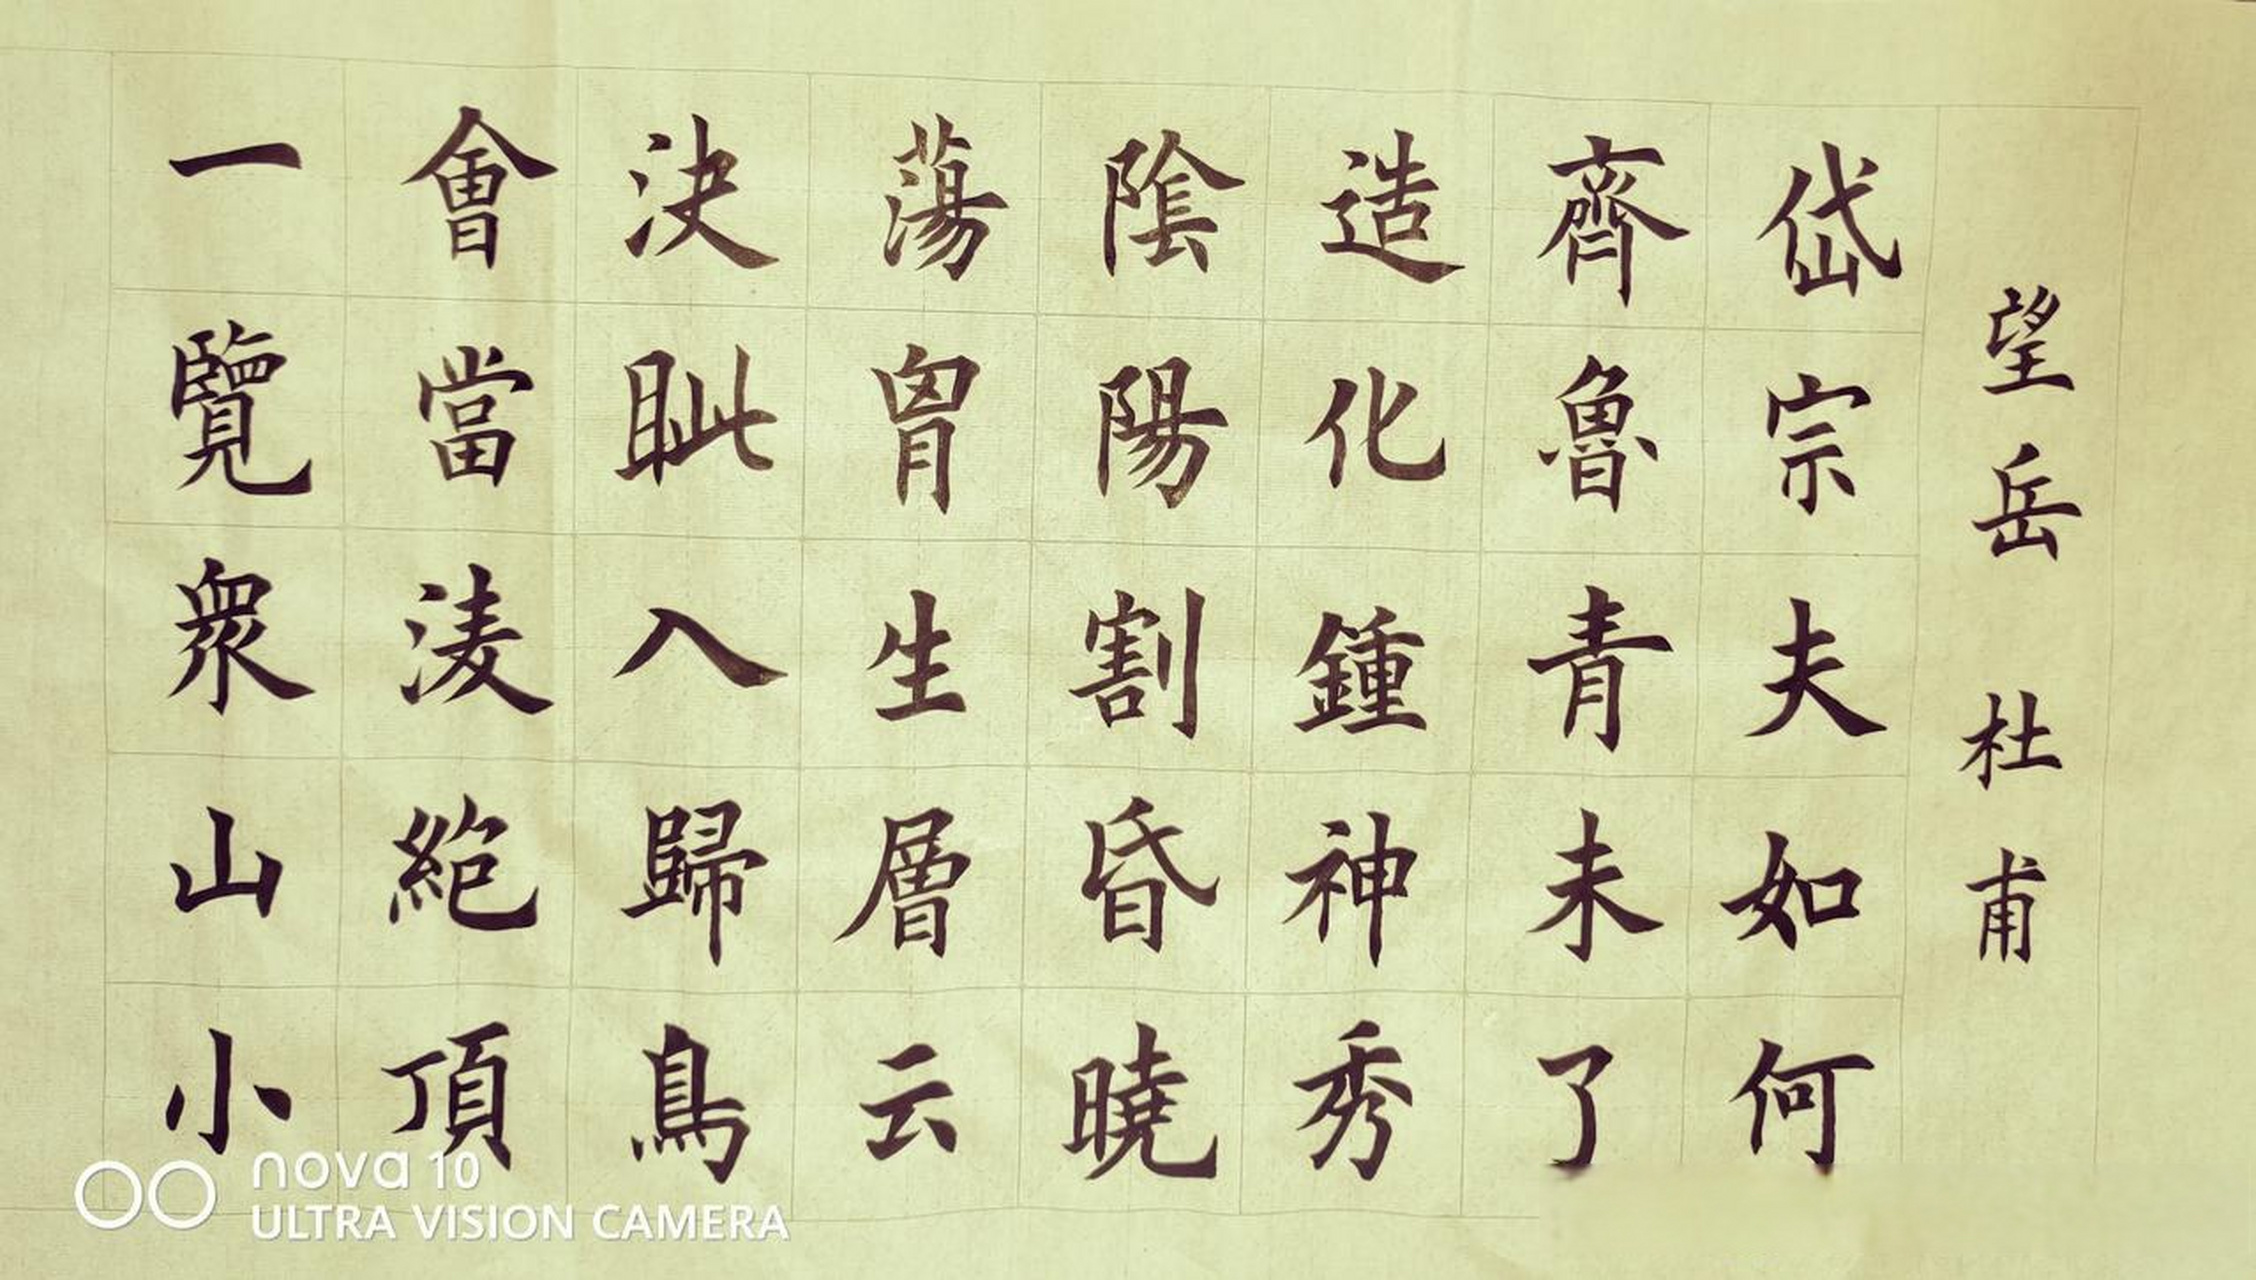 望岳 杜甫
岱宗夫如何
齊魯青未了
造化鍾神秀
陰陽割昏曉
蕩胷生層云
決眦入歸鳥
會當淩絶頂
一覽衆山小
nova 10
ULTRA VISION CAMERA